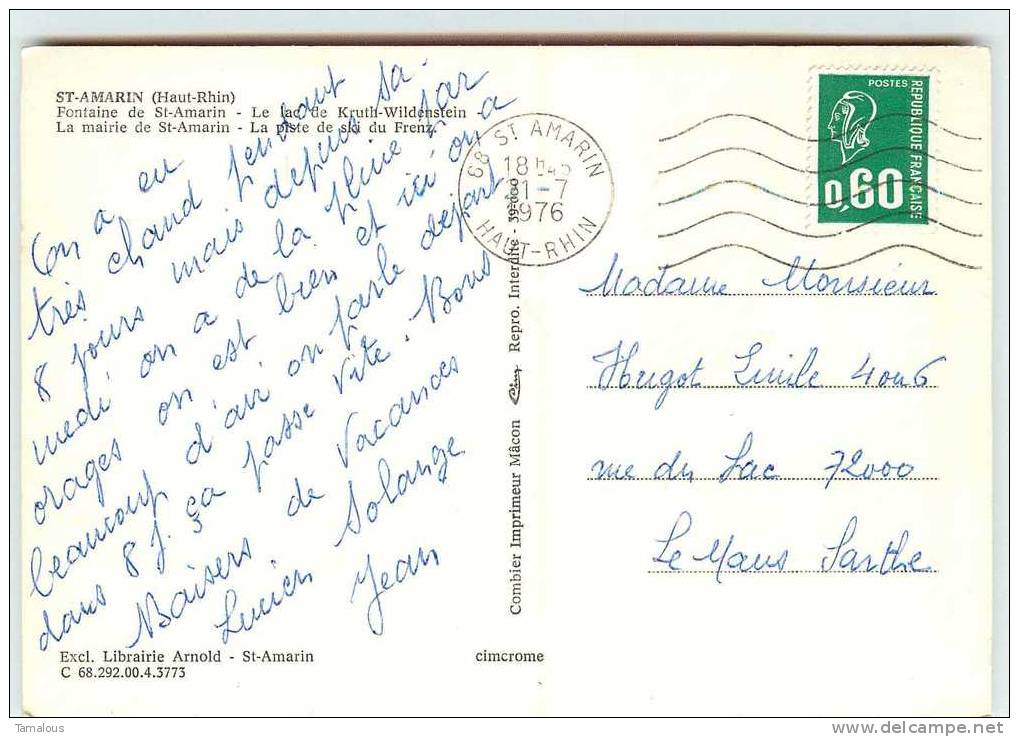 ST-AMARIN (Haut-Rhin)
Fontaine de St-Amarin - Le lac de Kruth-Wildenstein
La mairie de St-Amarin - La piste de ski du Frenz.
On a eu pendant
très chaud
8 jours mais depuis sa-
medi on a de la pluie par
orages on est bien et ici on a
beaucoup d'air on parle départ
dans 8 j. ça passe vite. Bons
Baisers de Vacances
Lucien Solange
Jean
Excl. Librairie Arnold - St-Amarin
C 68.292.00.4.3773
cimcrome
Combier Imprimeur Mâcon Repro. Interdite - 39-000
68 ST AMARIN
18H45
21-7
1976
HAUT-RHIN
POSTES
REPUBLIQUE FRANÇAISE
0,60
Madame Monsieur
Hugot Emile 4 ou 6
rue du Lac 72000
Le Mans Sarthe
Tamalous
www.delcampe.net